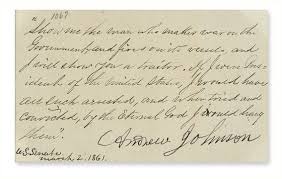 "Show me the man who makes war on the
Government, and fires on its vessels, and
I will show you a traitor. If I were Pres-
ident of the United States, I would have
all such arrested, and when tried and
convicted, by the Eternal God I would hang
them".
Andrew Johnson
U.S. Senate
March 2. 1861.